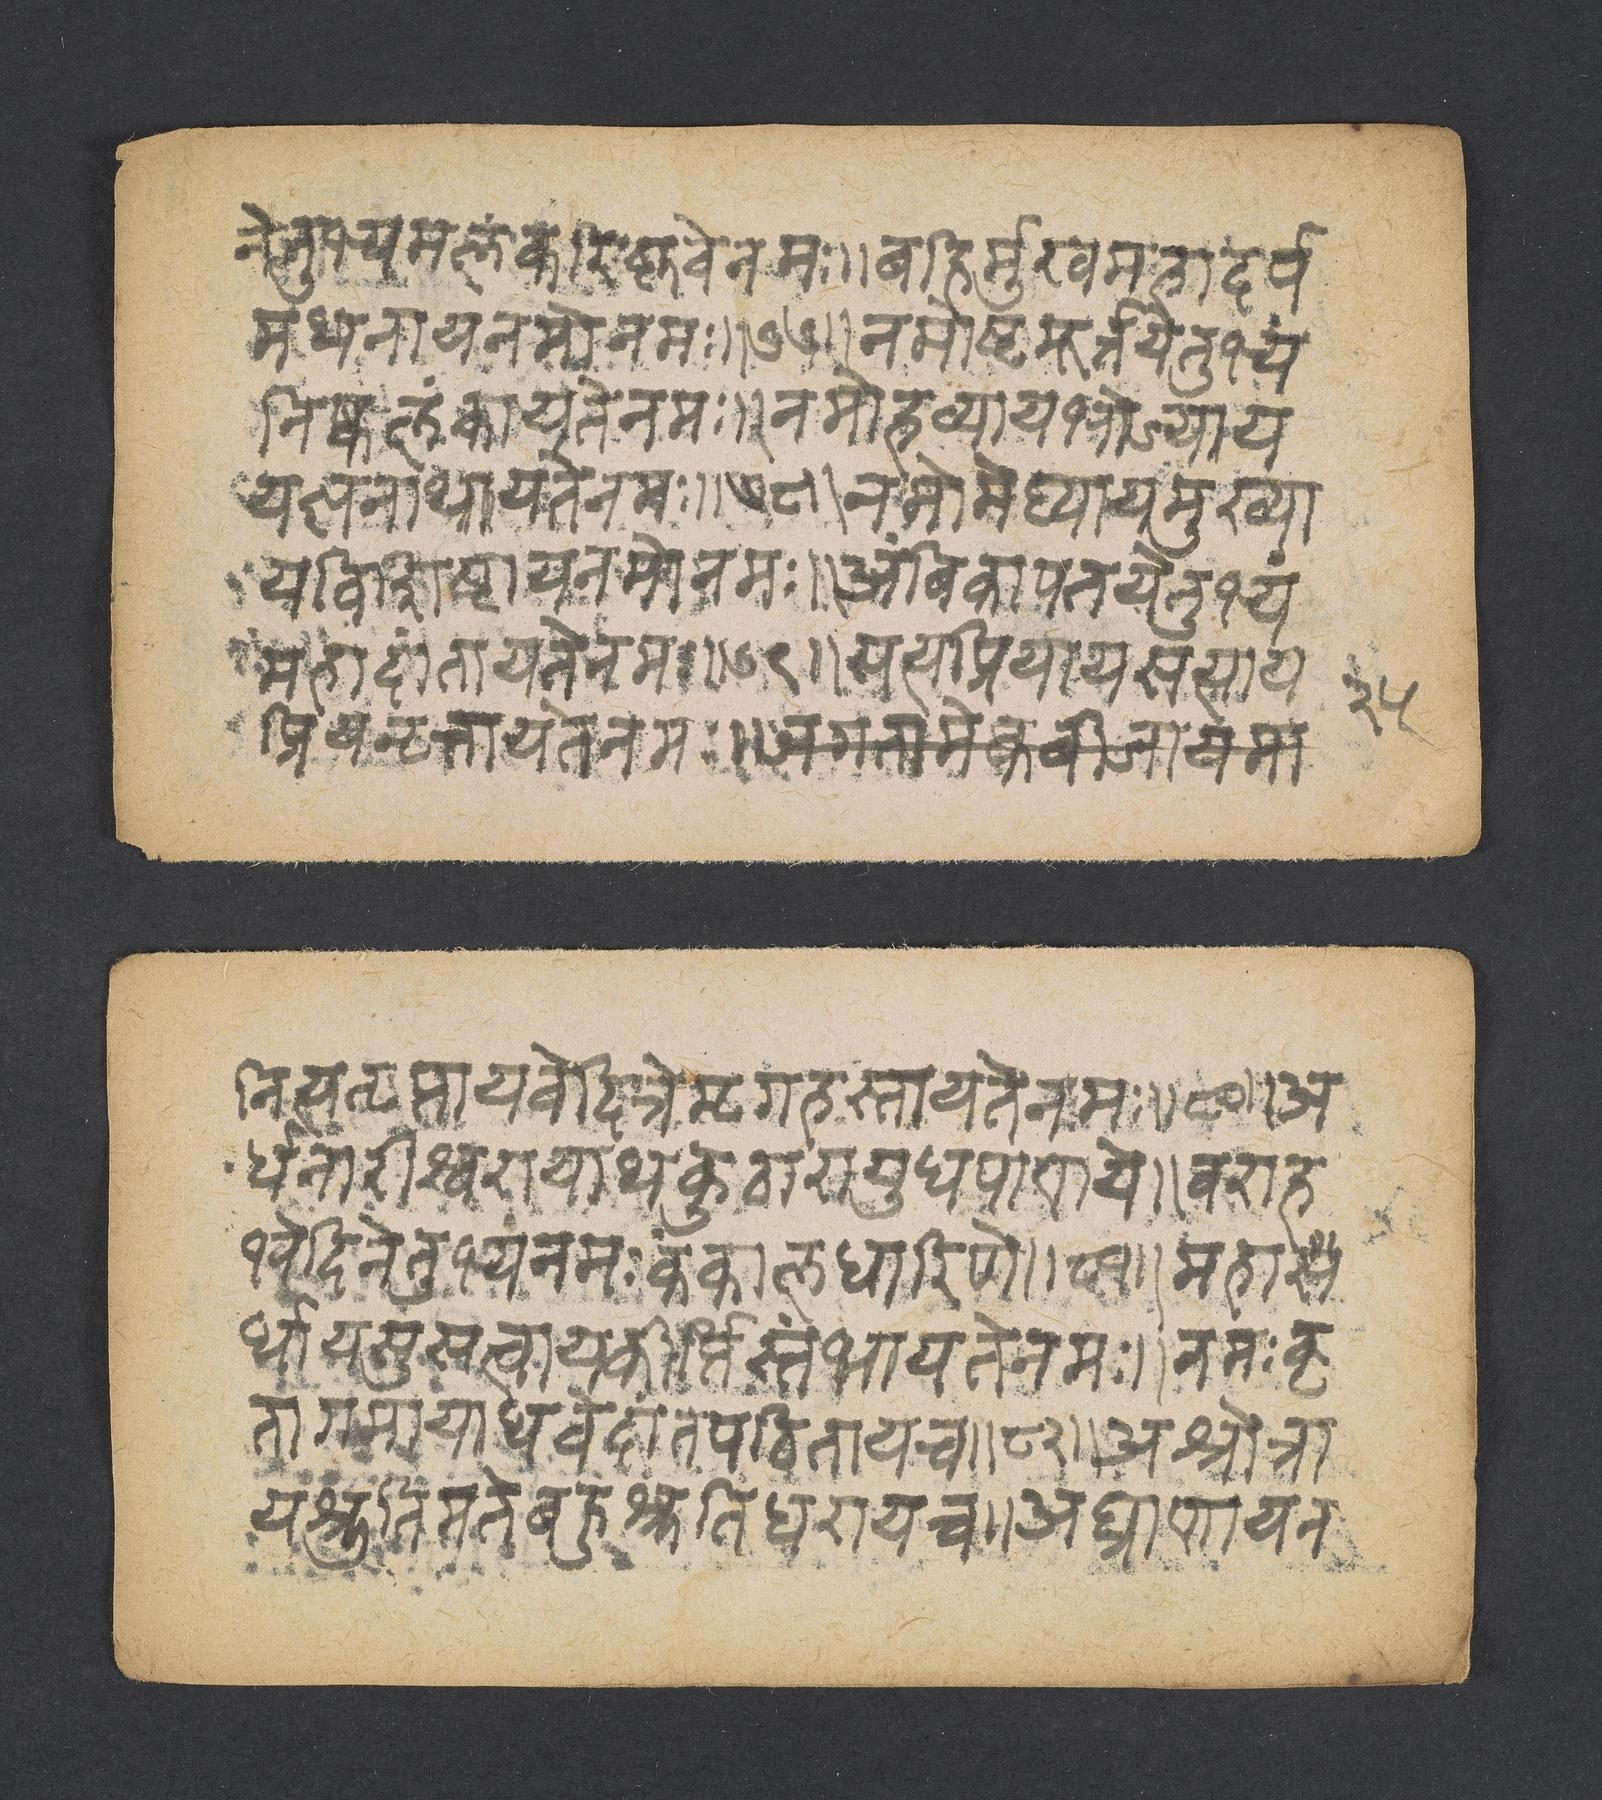 नेतुभ्यमलंकरिष्णवेनमः॥बहिर्मुखमहादर्प
मथनायनमोनमः॥७७॥नमोष्टमूर्त्तयेतुभ्यं
निष्कलंकायतेनमः॥नमोहव्यायभोज्याय
यज्ञनाथायतेनमः॥७८॥नमोमेध्यायमुख्या
यविशिष्टायनमोनमः॥अंबिकापतयेतुभ्यं
महादांतायतेनमः॥७९॥सत्यप्रियायसत्याय
प्रियनृत्तायतेनमः॥जगतामेकबीजायमा
३५
नित्यतृप्तायवेदित्रेमृगहस्तायतेनमः॥८०॥अ
र्धनारीश्वरायाथकुठारायुधपाणये॥वराह
भेदिनेतुभ्यंनमःकंकालधारिणे॥८१॥महार्सा
र्थायसुसत्वायकीर्त्तिस्तंभायतेनमः॥नमःकृ
तागमायाथवेदांतपठितायच॥८२॥अश्रोत्रा
यश्रुतिमतेबहुश्रुतिधरायच॥अघ्राणायन